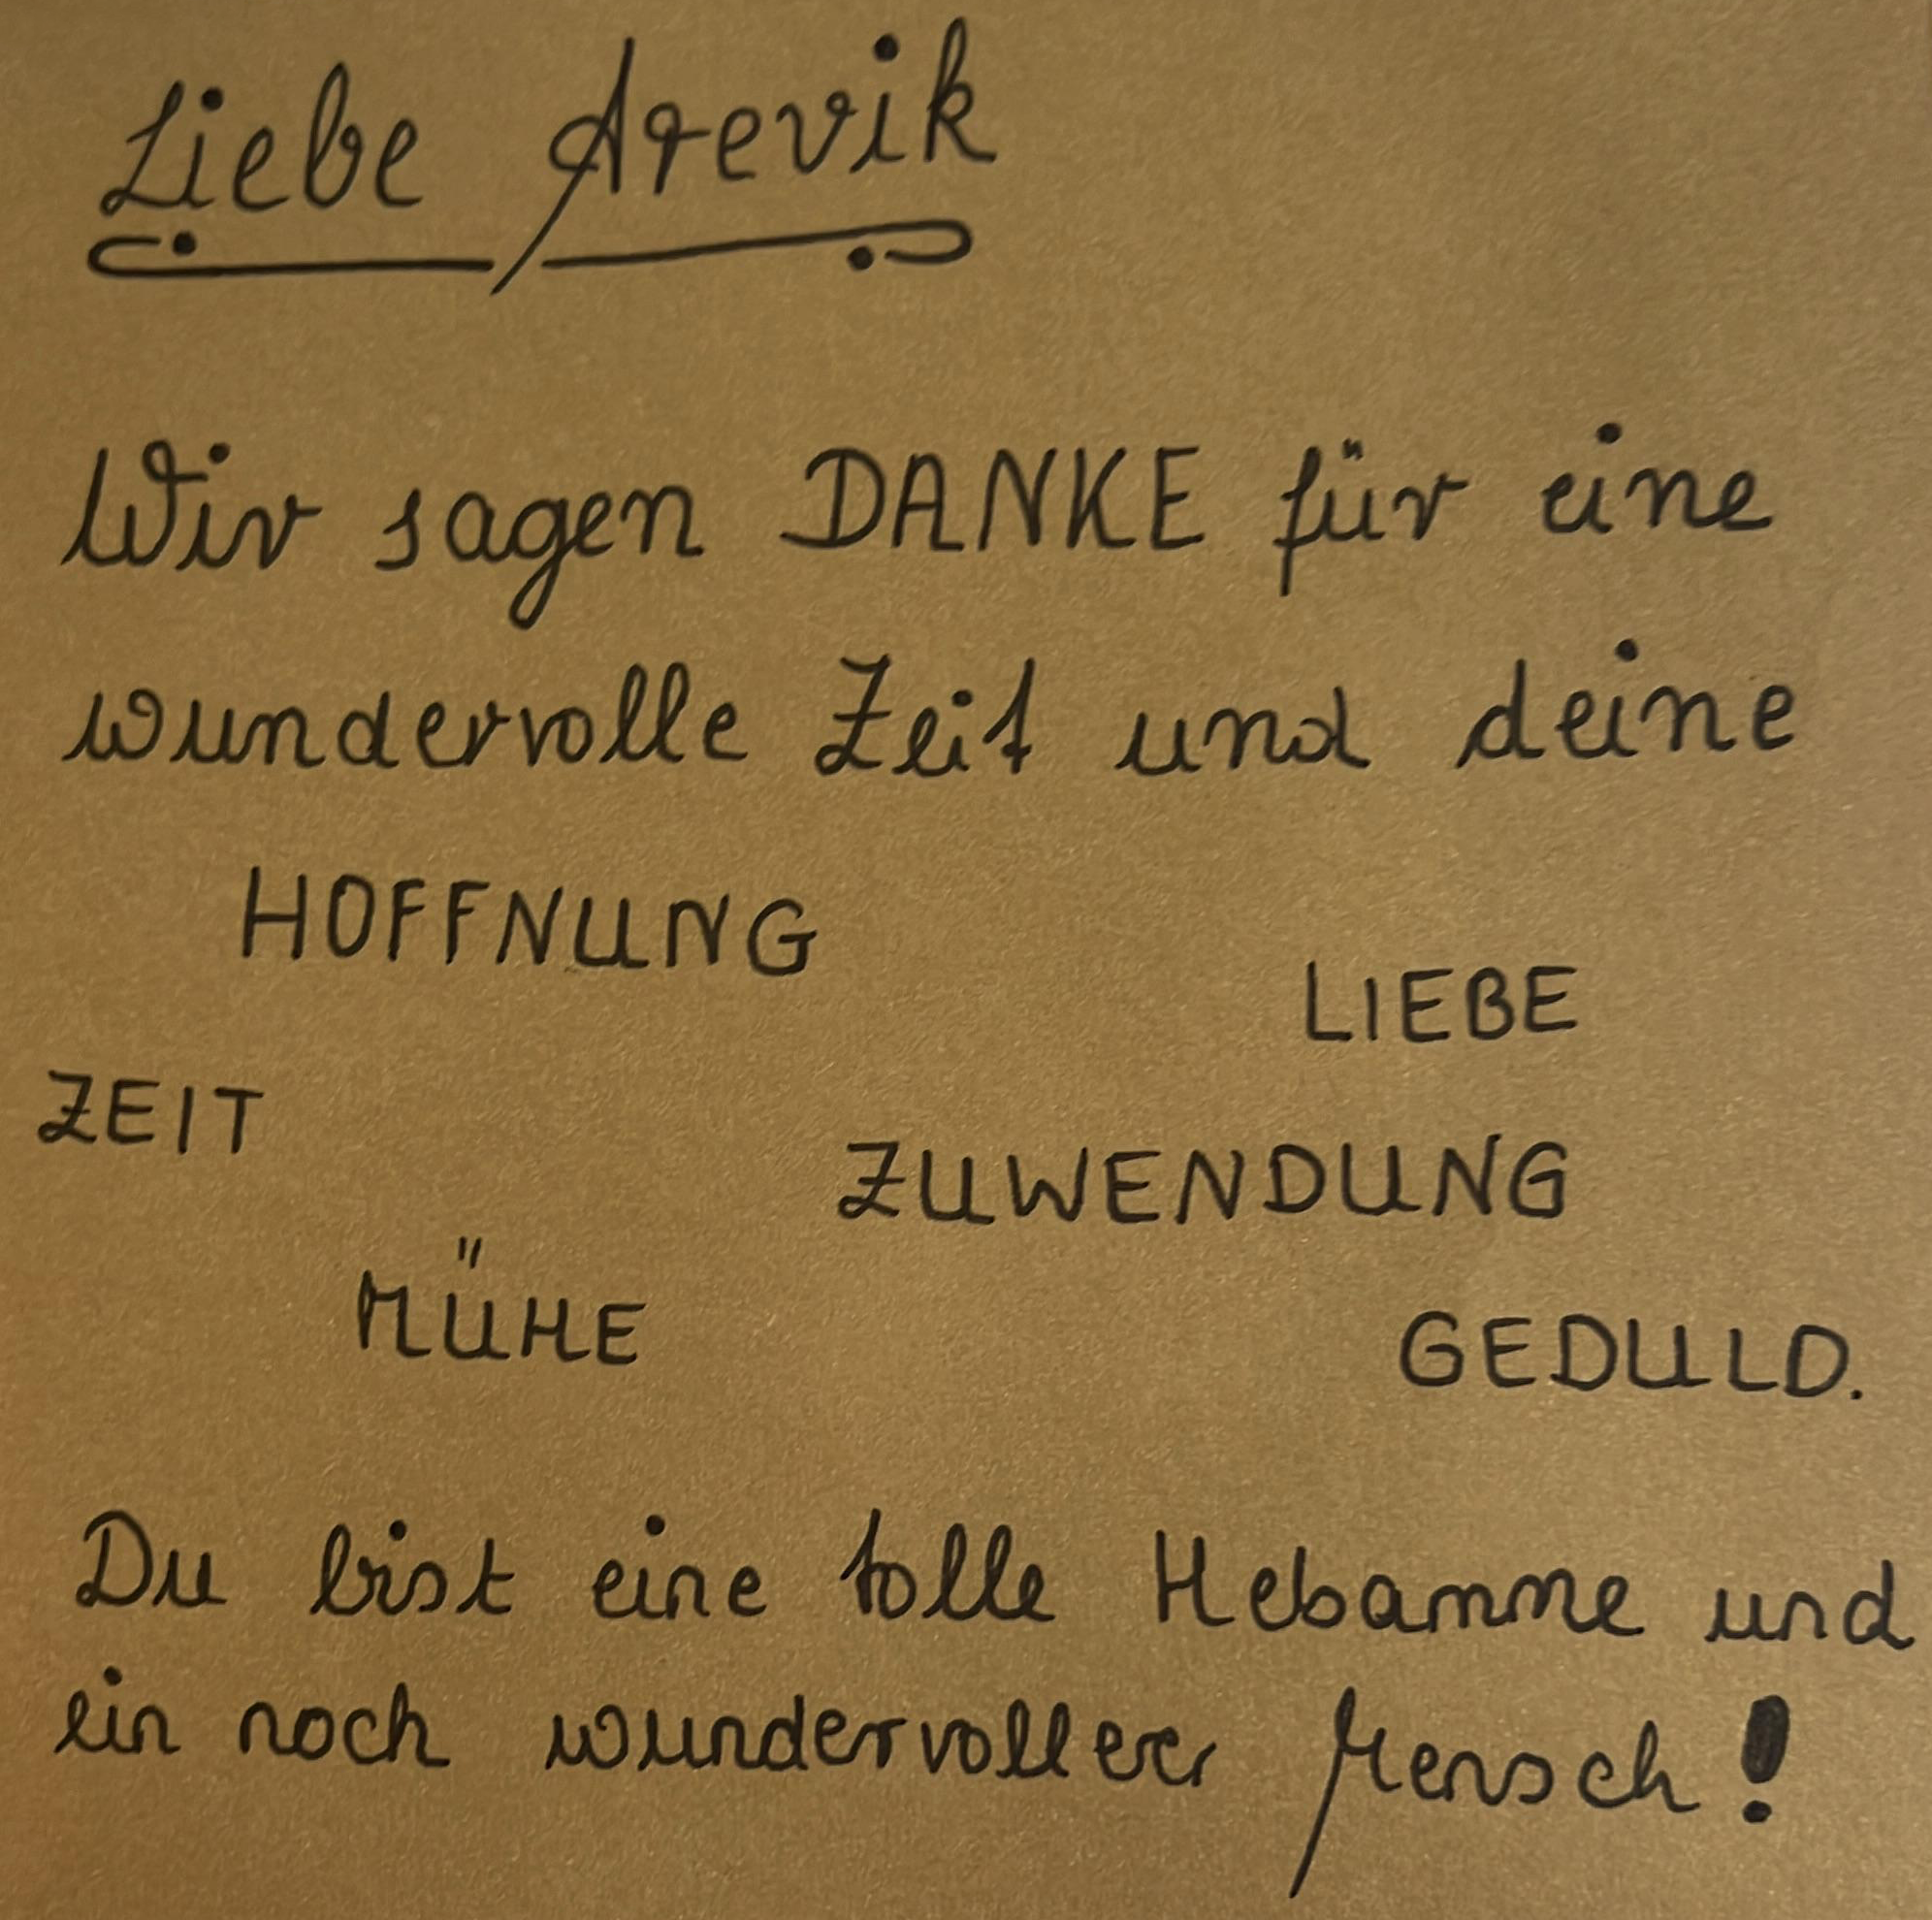 Liebe Arevik
Wir sagen DANKE für eine
wundervolle Zeit und deine
HOFFNUNG
LIEBE
ZEIT
ZUWENDUNG
MÜHE
GEDULD.
Du bist eine tolle Hebamme und
ein noch wundervollerer Mensch!